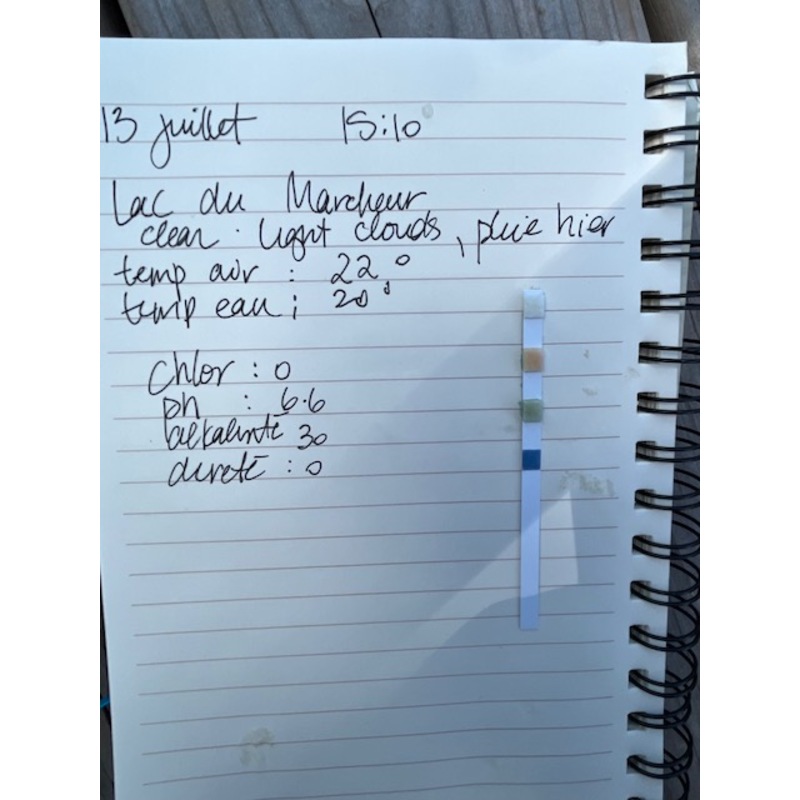 13 juillet 15:10
Lac du Marcheur
clear. light clouds, pluie hier
temp air : 22°
temp eau : 20°
Chlor : 0
ph : 6.6
alkalinté 30
dureté : 0